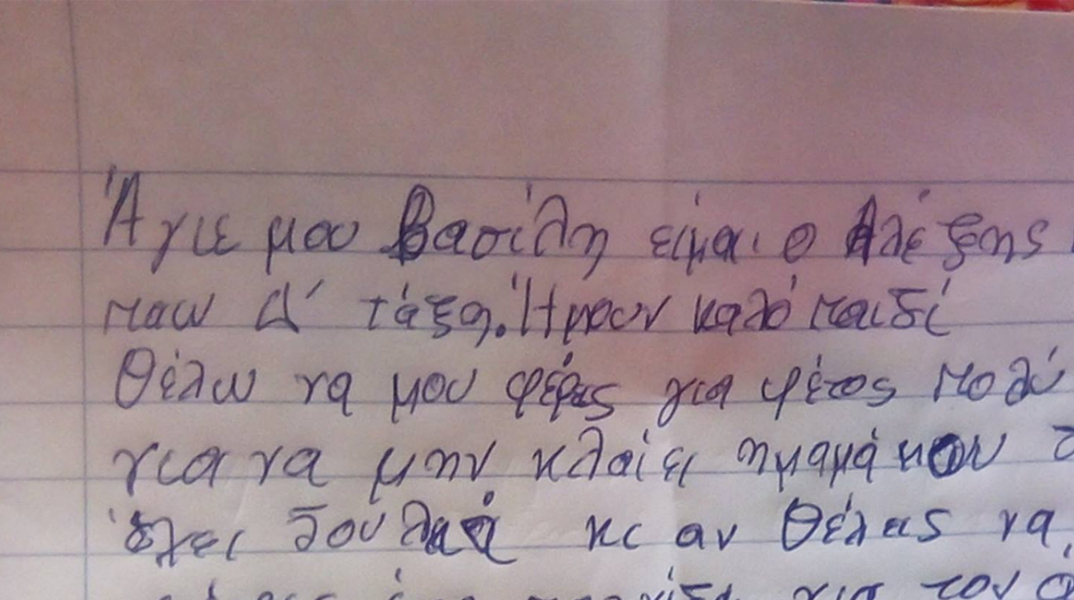 Άγιε μου Βασίλη είμαι ο Αλέξης
παω Δ' τάξη. Ήμουν καλό παιδί
Θέλω να μου φέρεις για φέτος πολύ
για να μην κλαίει ημαμά μου
έχει δουλειά κι αν θέλεις να
για τον